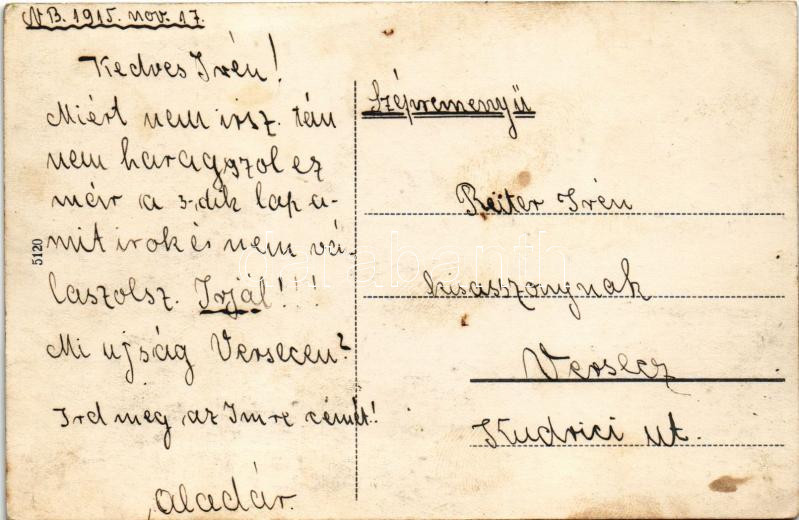 NB. 1915. nov. 17.
Kedves Irén!
Miért nem irsz. tán
nem haragszol ez
már a 3-dik lap a-
mit irok és nem vá-
laszolsz. Irjál!!!
Mi ujság Versecen?
Ird meg az Imre címét!
Aladár.
5120
Szépreményü
Reiter Irén
kisasszonynak
Versecz
Kudrici ut.
darabanth